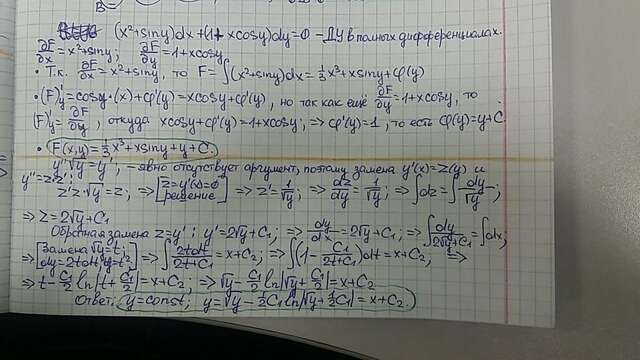 B=
(x²+siny)dx+(1+xcosy)dy=0 – ДУ в полных дифференциалах.
∂F/∂x=x²+siny; ∂F/∂y=1+xcosy
• Т.к. ∂F/∂x=x²+siny, то F=∫(x²+siny)dx=⅓x³+xsiny+φ(y)
• (F)'y=cosy·(x)+φ'(y)=xcosy+φ'(y), но так как ещё ∂F/∂y=1+xcosy, то
(F)'y=∂F/∂y, откуда xcosy+φ'(y)=1+xcosy; ⇒ φ'(y)=1, то есть φ(y)=y+C.
• F(x,y)=⅓x³+xsiny+y+C.
y''√y=y'; – явно отсутствует аргумент, поэтому замена y'(x)=z(y) и
y''=z·z'; z'z·√y=z; ⇒ [z=y'(x)=0 решение] ⇒ z'=1/√y; ⇒ dz/dy=1/√y; ⇒ ∫dz=∫dy/√y;
⇒ z=2√y+C₁
Обратная замена z=y': y'=2√y+C₁; ⇒ dy/dx=2√y+C₁; ⇒ ∫dy/(2√y+C₁)=∫dx;
⇒ [Замена √y=t; dy=2tdt; y=t²] ⇒ ∫2tdt/(2t+C₁)=x+C₂; ⇒ ∫(1-C₁/(2t+C₁))dt=x+C₂; ⇒
⇒ t-C₁/2 ln|t+C₁/2|=x+C₂; ⇒ √y-C₁/2 ln|√y+C₁/2|=x+C₂
Ответ: y=const; y=√y-½C₁ln|√y+½C₁|=x+C₂